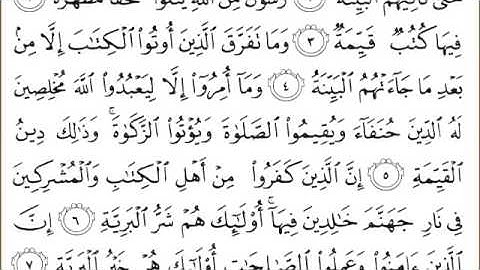 حَتَّىٰ تَأْتِيَهُمُ ٱلْبَيِّنَةُ ١ رَسُولٌ مِّنَ ٱللَّهِ يَتْلُوا۟ صُحُفًا مُّطَهَّرَةً ٢
فِيهَا كُتُبٌ قَيِّمَةٌ ٣ وَمَا تَفَرَّقَ ٱلَّذِينَ أُوتُوا۟ ٱلْكِتَٰبَ إِلَّا مِنۢ
بَعْدِ مَا جَآءَتْهُمُ ٱلْبَيِّنَةُ ٤ وَمَآ أُمِرُوٓا۟ إِلَّا لِيَعْبُدُوا۟ ٱللَّهَ مُخْلِصِينَ
لَهُ ٱلدِّينَ حُنَفَآءَ وَيُقِيمُوا۟ ٱلصَّلَوٰةَ وَيُؤْتُوا۟ ٱلزَّكَوٰةَ ۚ وَذَٰلِكَ دِينُ
ٱلْقَيِّمَةِ ٥ إِنَّ ٱلَّذِينَ كَفَرُوا۟ مِنْ أَهْلِ ٱلْكِتَٰبِ وَٱلْمُشْرِكِينَ
فِى نَارِ جَهَنَّمَ خَٰلِدِينَ فِيهَآ ۚ أُو۟لَٰٓئِكَ هُمْ شَرُّ ٱلْبَرِيَّةِ ٦ إِنَّ
ٱلَّذِينَ ءَامَنُوا۟ وَعَمِلُوا۟ ٱلصَّٰلِحَٰتِ أُو۟لَٰٓئِكَ هُمْ خَيْرُ ٱلْبَرِيَّةِ ٧